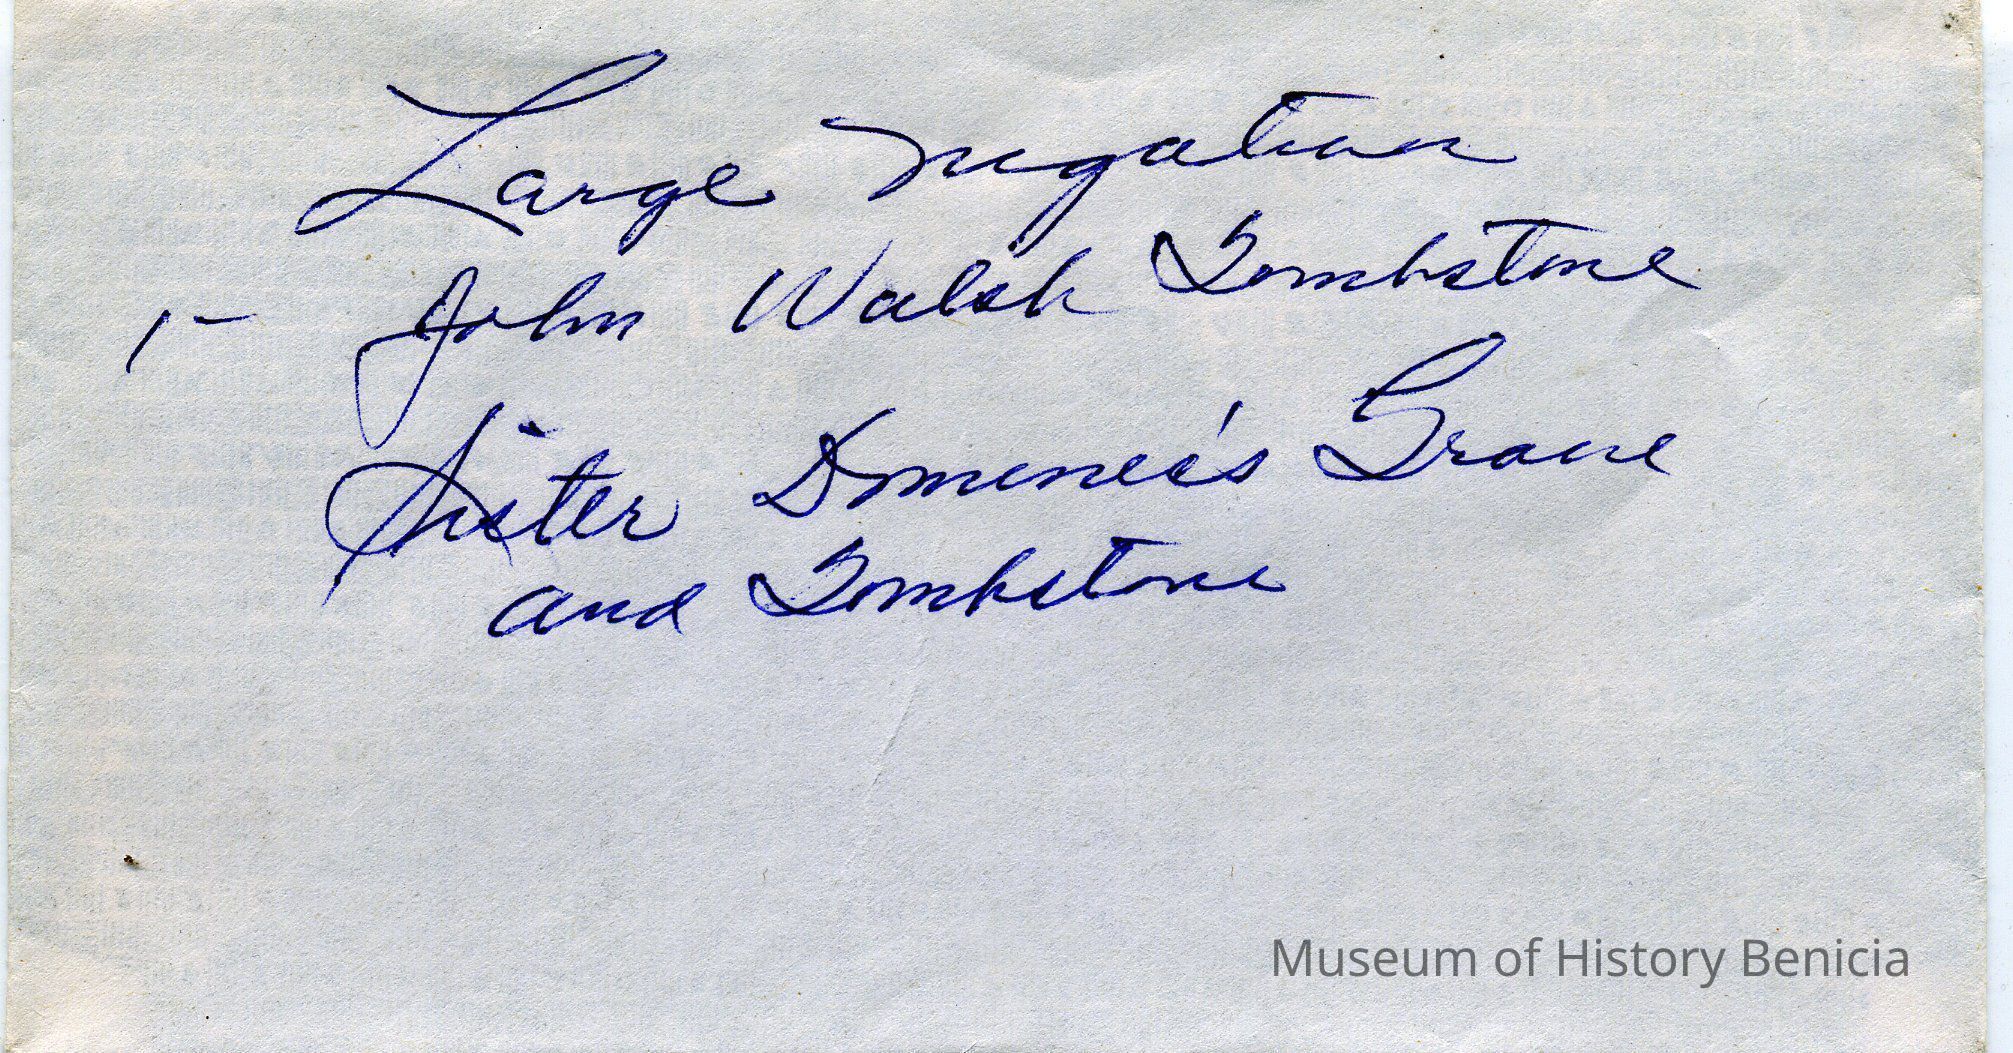 Large Negative
1- John Walsh Tombstone
Sister Domenca's Grave
and Tombstone
Museum of History Benicia